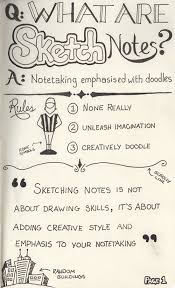 Q: WHAT ARE
Sketch NOTES?
A: Notetaking emphasised with doodles
Rules
1 NONE REALLY
2 UNLEASH IMAGINATION
3 CREATIVELY DOODLE
"SKETCHING NOTES IS NOT
ABOUT DRAWING SKILLS, IT'S ABOUT
ADDING CREATIVE STYLE AND
EMPHASIS TO YOUR NOTETAKING"
RANDOM
BUILDINGS
PAGE 1